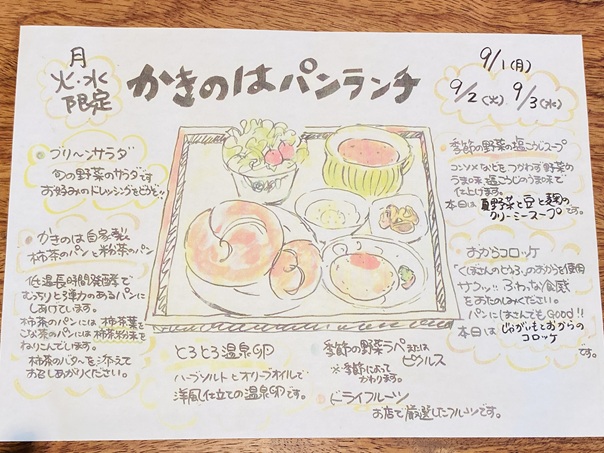 月
火・水
限定
かきのはパンランチ
9/1(月)
9/2(火) 9/3(水)
グリーンサラダ
旬の野菜のサラダです
お好みのドレッシングをどうぞ!!
かきのは自家製
柿茶のパンと粉茶のパン
低温長時間発酵で
もっちりと弾力のあるパンに
しあげています。
柿茶のパンには柿茶葉を
柿茶粉末を
ねりこんでいます。
柿茶のバターを添えて
お召しあがりください。
季節の野菜の塩こうじスープ
コンソメなどをつかわず野菜の
うま味と塩こうじのうま味で
仕上げます。
本日は夏野菜と豆と麹の
クリーミースープです。
おからコロッケ
のおからを使用
サクッ!! ふわっな食感
をおたのしみください。
パンにはさんでもGood!!
本日はじゃがいもとおからの
コロッケ
です。
とろとろ温泉卵
ハーブソルトとオリーブオイルで
洋風仕立ての温泉卵です。
季節の野菜ラペまたは
ピクルス
※季節によって
かわります。
ドライフルーツ
お店で厳選したフルーツです。